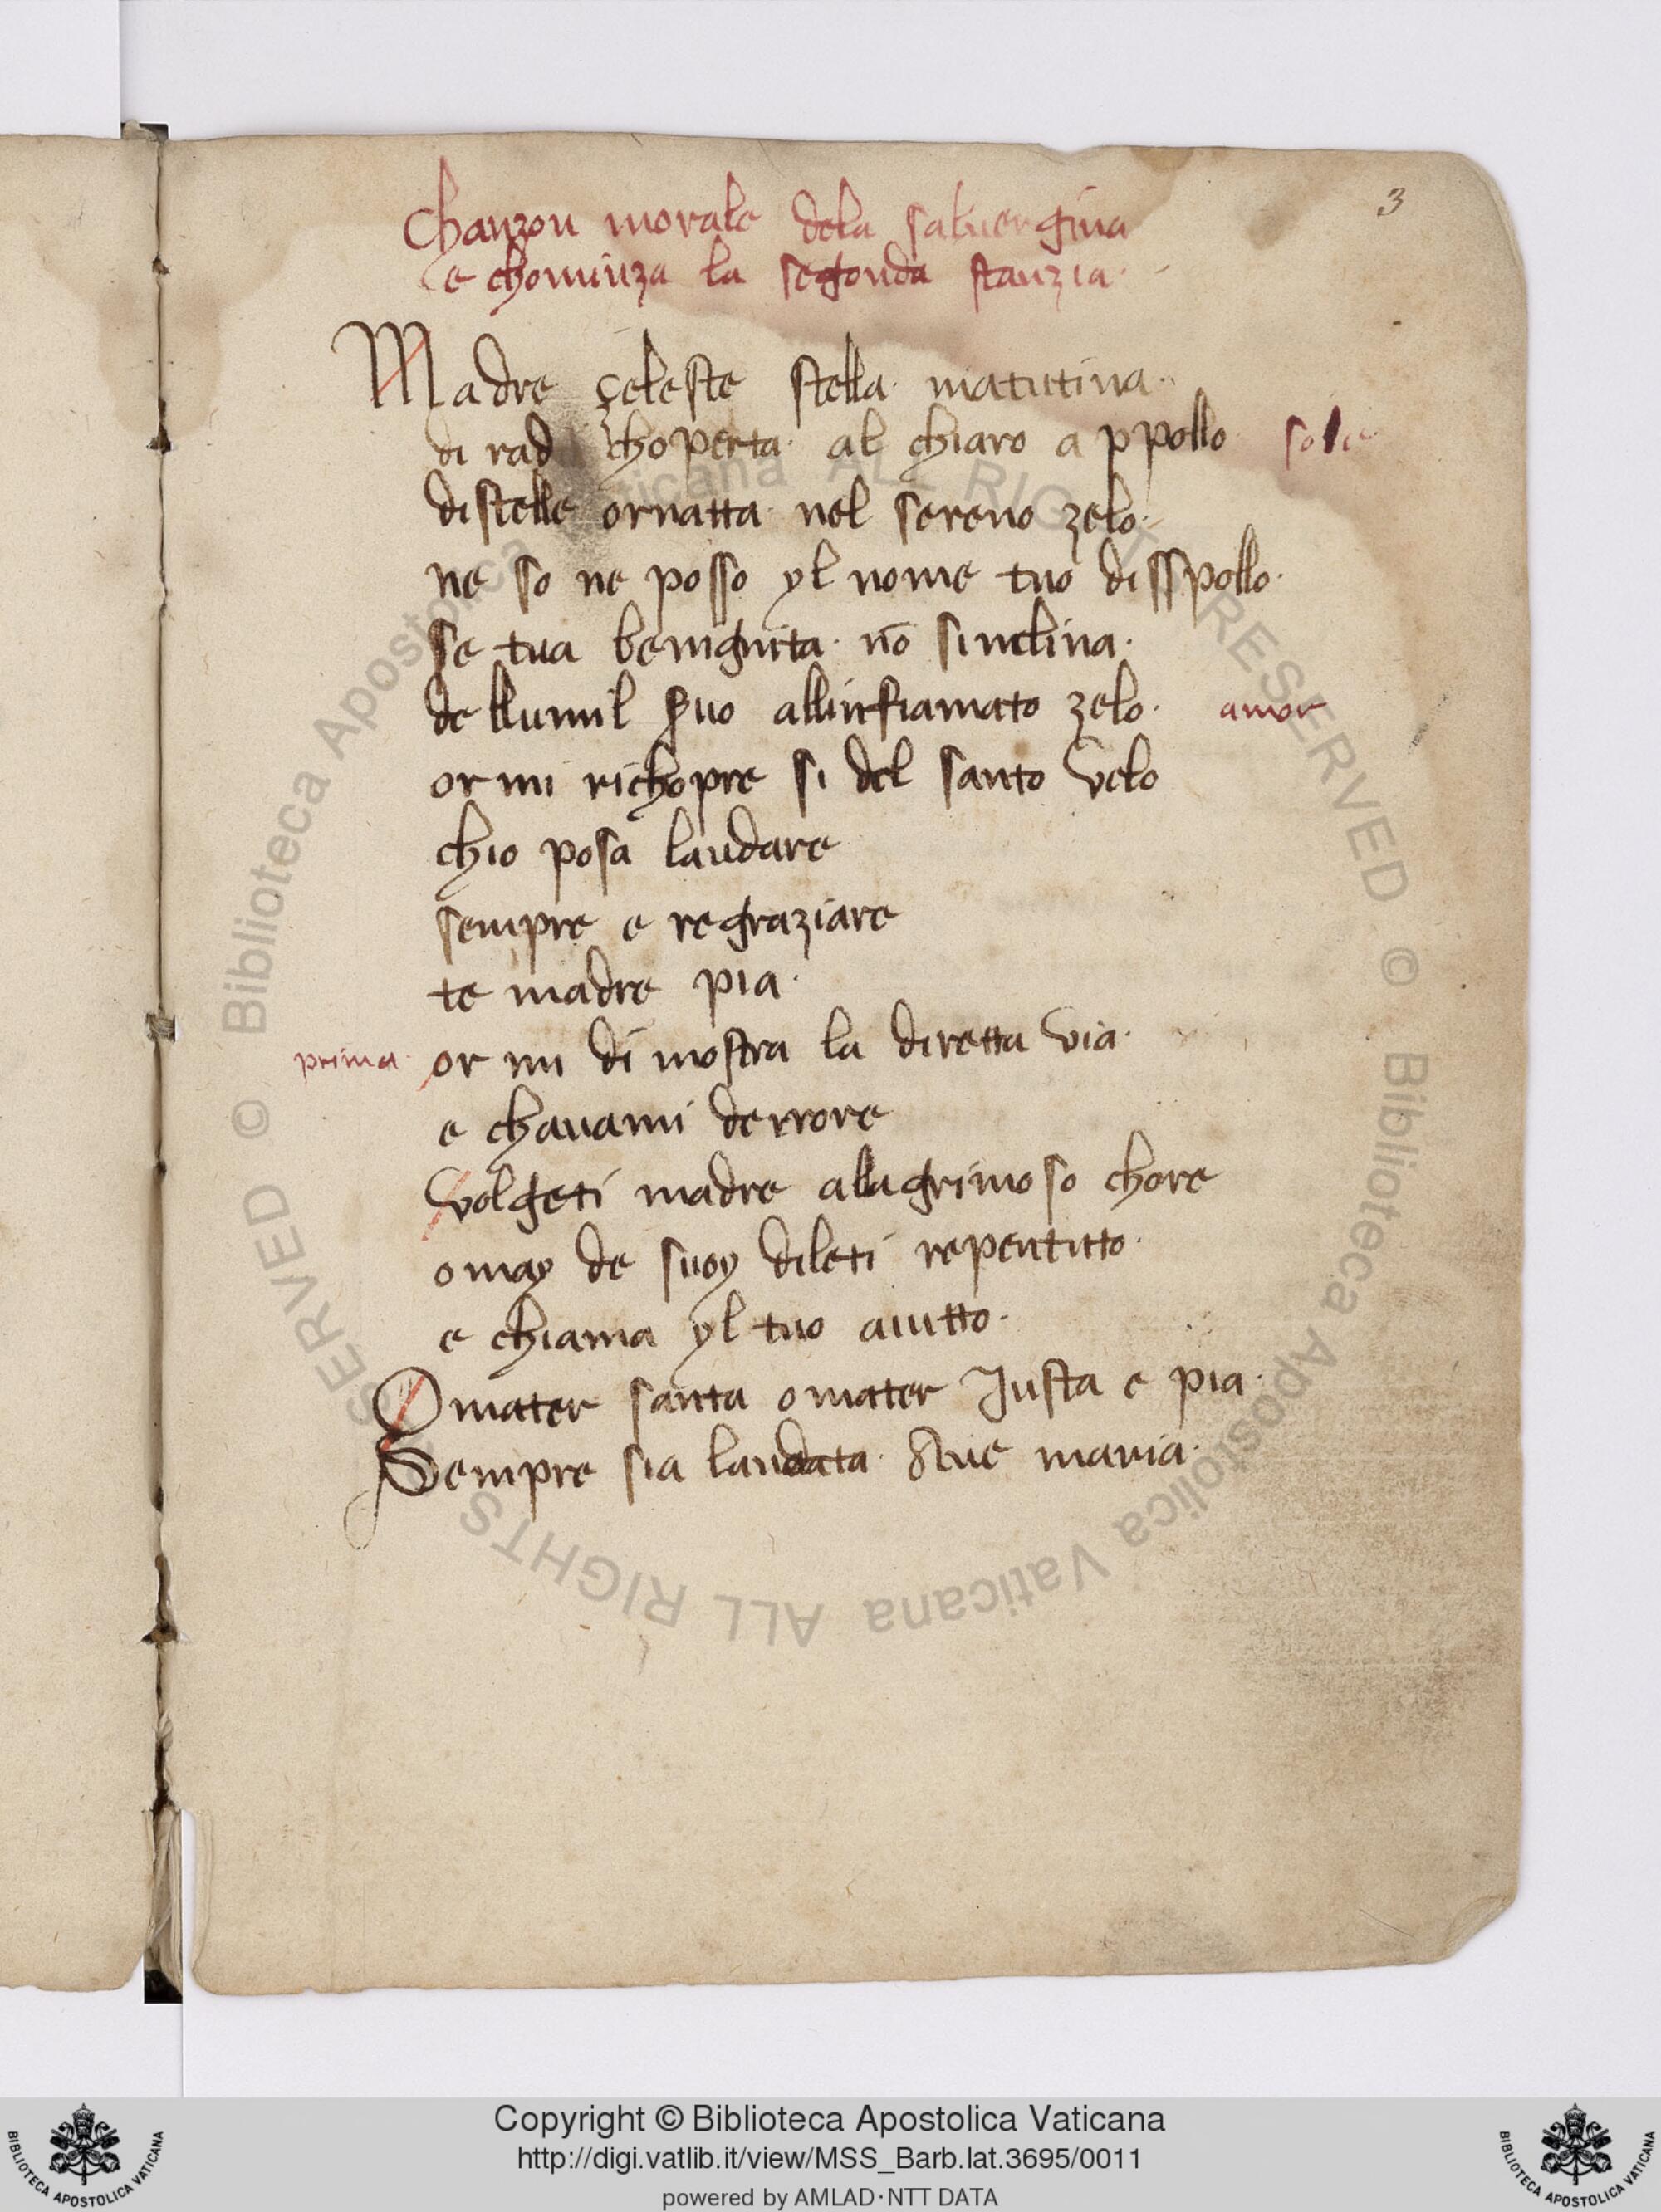 3
Chanzon morale dela saluergina
e chominza la segonda stanzia
Madre çeleste stella matutina
di rad choperta al chiaro appollo sole
distelle ornatta nel sereno zelo
ne so ne posso yl nome tuo disspollo
se tua benignita nō sinclina
dellumil suo allinfiamato zelo amor
or mi richopre si del santo velo
chio posa laudare
sempre e regraziare
te madre pia
prima or mi di mostra la diretta via
e chauami derrore
volgeti madre allagrimoso chore
omay de suoy dileti repentitto
e chiama yl tuo aiutto
O mater santa o mater Justa e pia
Sempre sia laudata Aue maria
© Biblioteca Apostolica Vaticana ALL RIGHTS RESERVED © Biblioteca Apostolica Vaticana ALL RIGHTS RESERVED
Copyright © Biblioteca Apostolica Vaticana
http://digi.vatlib.it/view/MSS_Barb.lat.3695/0011
powered by AMLAD·NTT DATA
BIBLIOTECA APOSTOLICA VATICANA
BIBLIOTECA APOSTOLICA VATICANA